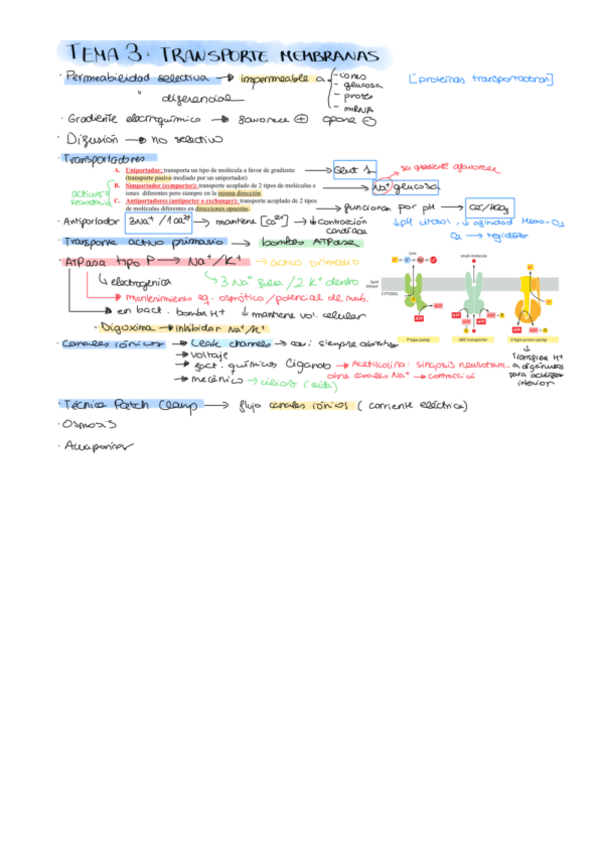 TEMA 3. TRANSPORTE MEMBRANAS
· Permeabilidad selectiva → impermeable a - iones [proteínas transportadoras]
- glucosa
" diferencial - protes
- mRNA
· Gradiente electroquímico → favorece + opone -
· Difusión → no selectivo
· Transportadores
A. Uniportador: transporta un tipo de molécula a favor de gradiente → Glut 1
(transporte pasivo mediado por un uniportador)
su gradiente a favorece
B. Simportador (cotransporter): transporte acoplado de 2 tipos de moléculas e → Na+ glucosa
iones diferentes pero siempre en la misma dirección
C. Antiportadores (antiporter o exchanger): transporte acoplado de 2 tipos → funcionan por pH → Cl-/HCO3
de moléculas diferentes en direcciones opuestas.
· Antiportador 3Na+/1Ca2+ → mantiene [Ca2+] → ↓ contracción cardiaca
↓pH citosol, ↓ afinidad Hemo-O2
O2 → tejidos
· Transporte activo primario → bombas ATPasa
· ATPasa tipo P → Na+/K+ → activo primario
electrogénica
3 Na+ fuera / 2 K+ dentro
mantenimiento eq. osmótico / potencial de memb.
en bact. bomba H+ ↓ mantiene vol. celular
· Digoxina → inhibidor Na+/K+
small molecule
lipid bilayer
CYTOSOL
ATP ADP
P-type pump ABC transporter V-type proton pump
Transfiere H+
a orgánulos
para acidificar
interior
· Canales iónicos → Leak channels → casi siempre abiertos
→ voltaje
→ fact. químicos ligando → Acetilcolina: sinapsis neurotrans...
abre canales Na+ → contracción
→ mecánico → cilios (oído)
· Técnica Patch Clamp → flujo canales iónicos (corriente eléctrica)
· Osmosis
· Acuaporinas